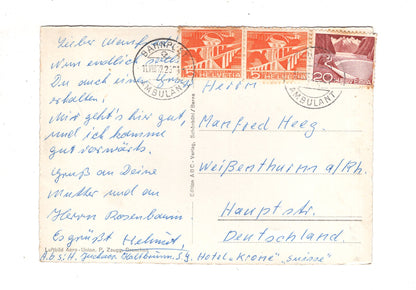 Lieber Manfred
Nun endlich sollst
Du auch einen Gruß
erhalten!
Mir geht's hier gut,
und ich komme
gut vorwärts.
Gruß an Deine
Mutter und an
Herrn Rosenbaum
Es grüßt Helmut,
BAHNPOST
AMBULANT
HELVETIA
5
HELVETIA
20
AMBULANT
Herrn
Manfred Heeg.
Weißenthurm a/Rh.
Hauptstr.
Deutschland.
Edition ABC - Verlag,
Luftbild Aero-Union, P. Zaugg,
Hotel „Krone" „Suisse"